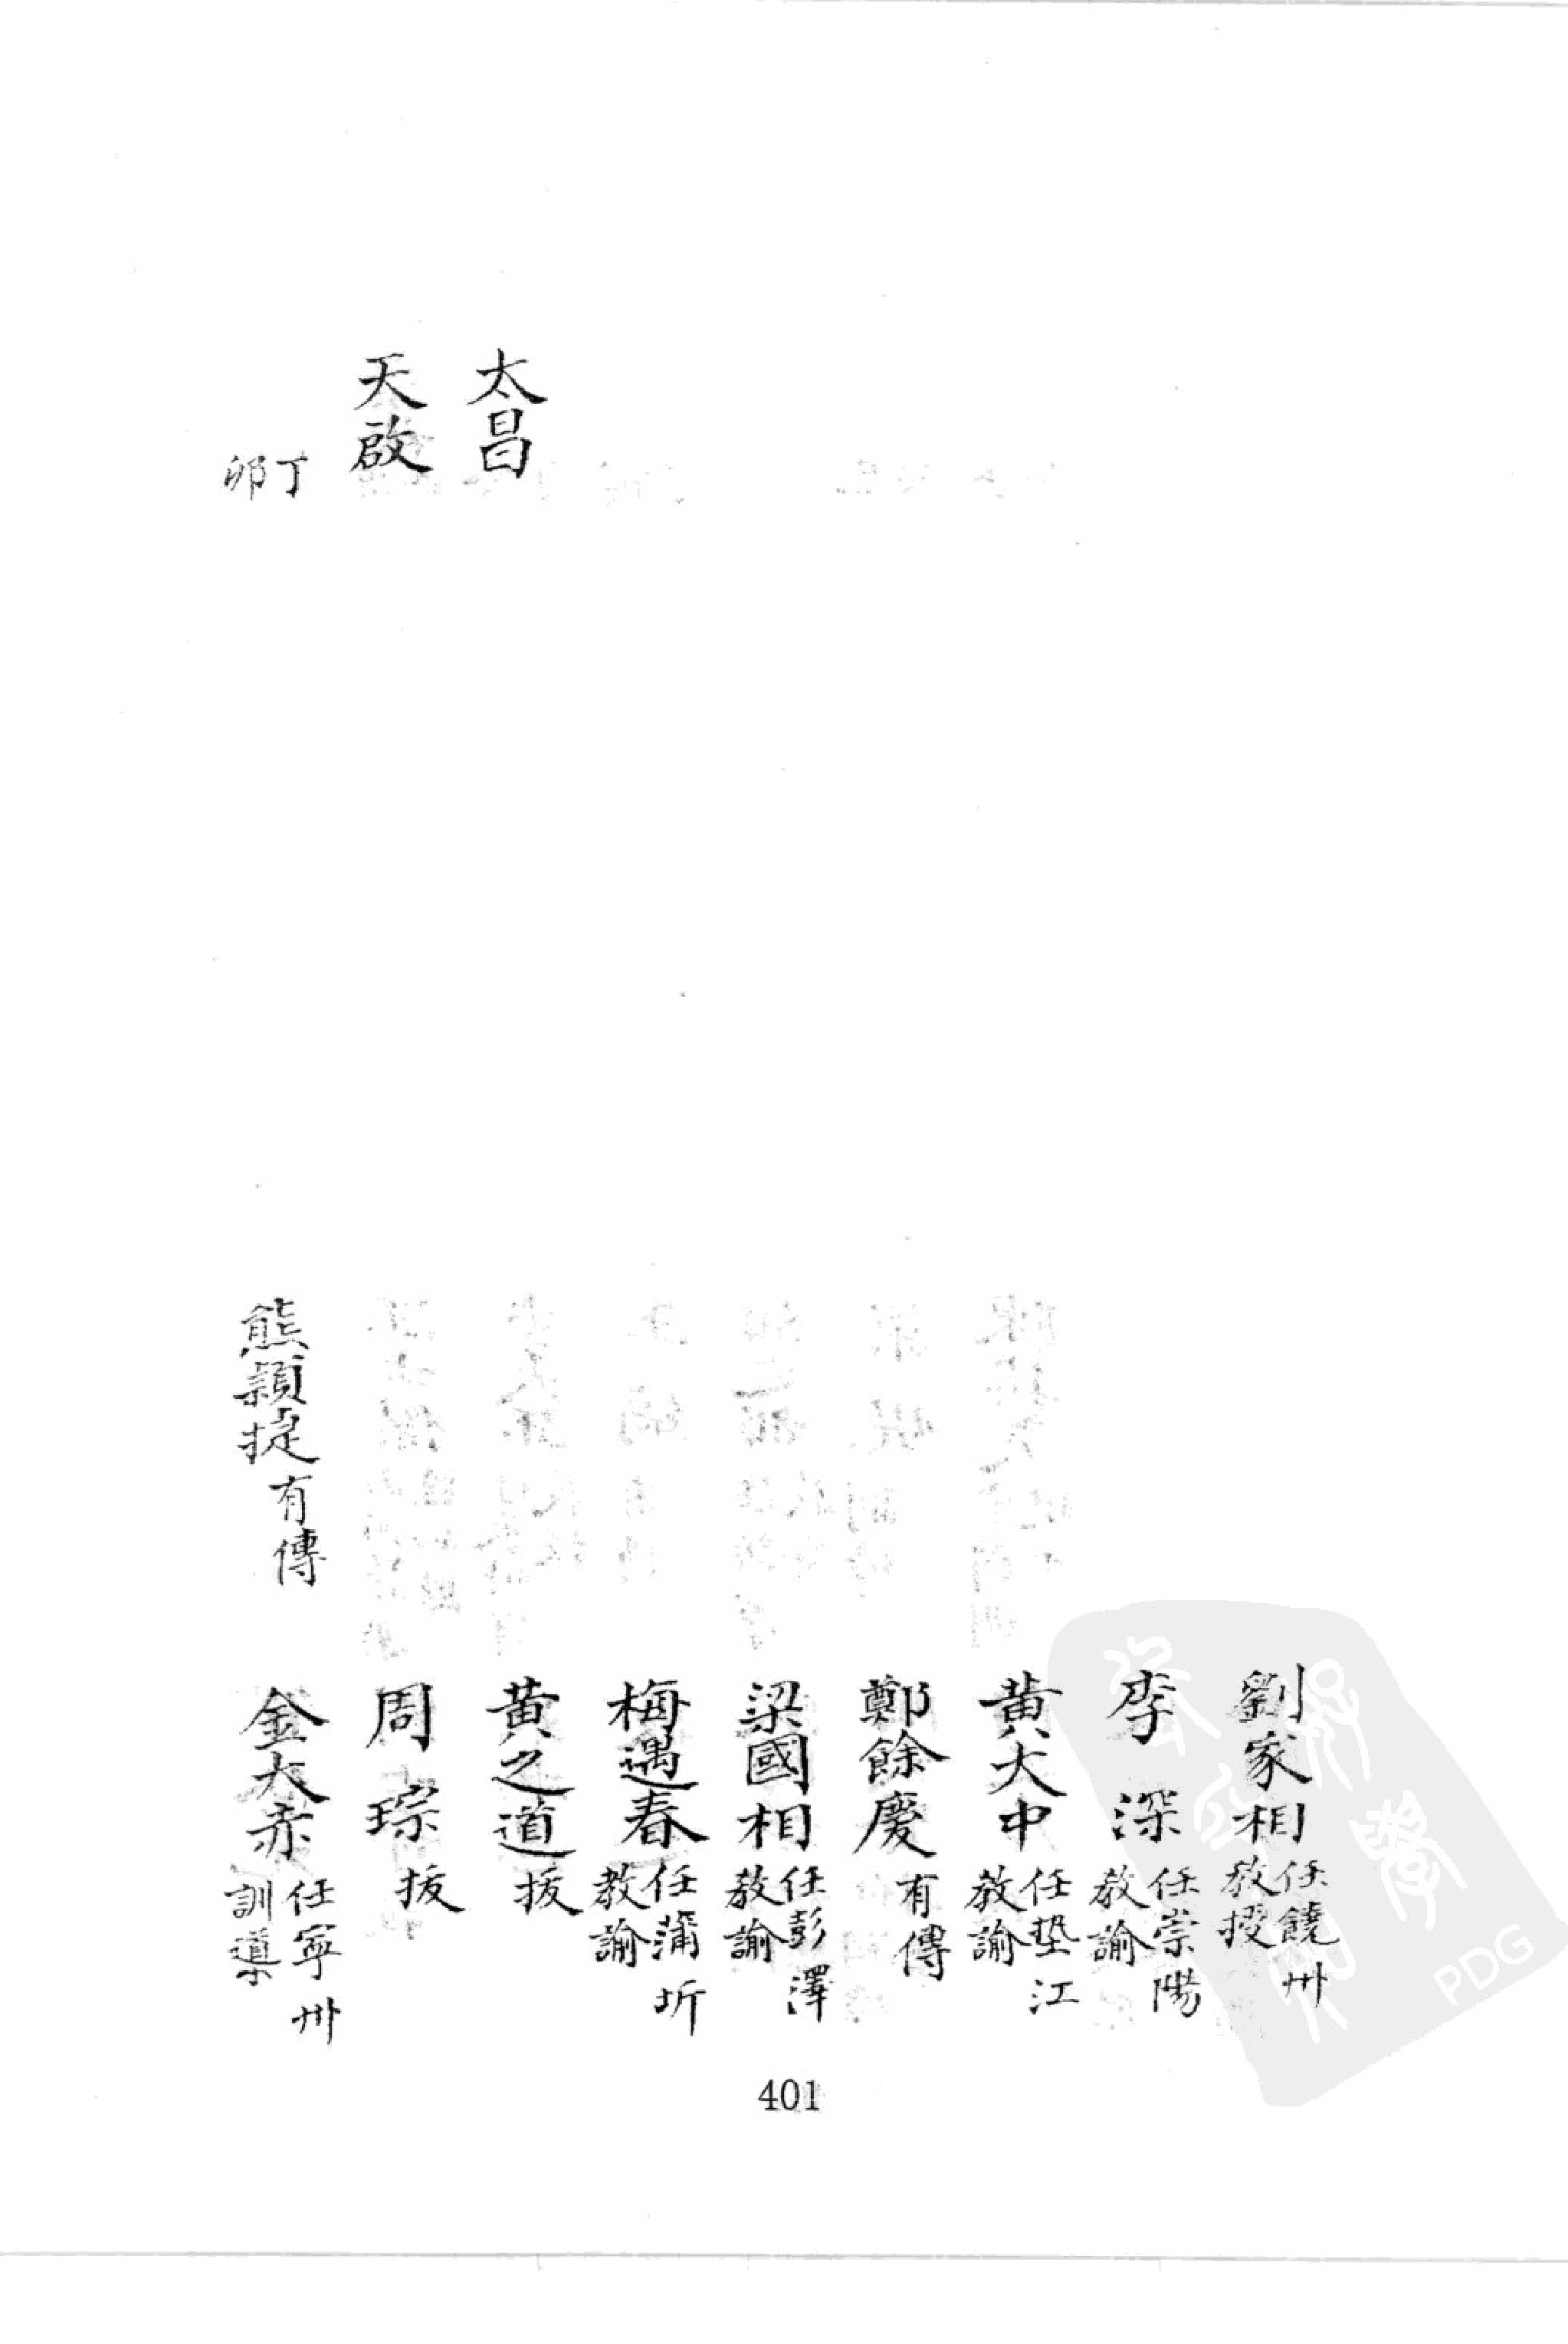 劉家相任饒州教授
李深任崇陽教諭
黄大中任墊江教諭
鄭餘慶有傳
梁國相任彭澤教諭
梅遇春任蒲圻教諭
太昌
黄之道拔
天啟
周琮拔
丁卯
熊頴捷有傳
金大赤任寧州訓導
401
PDG